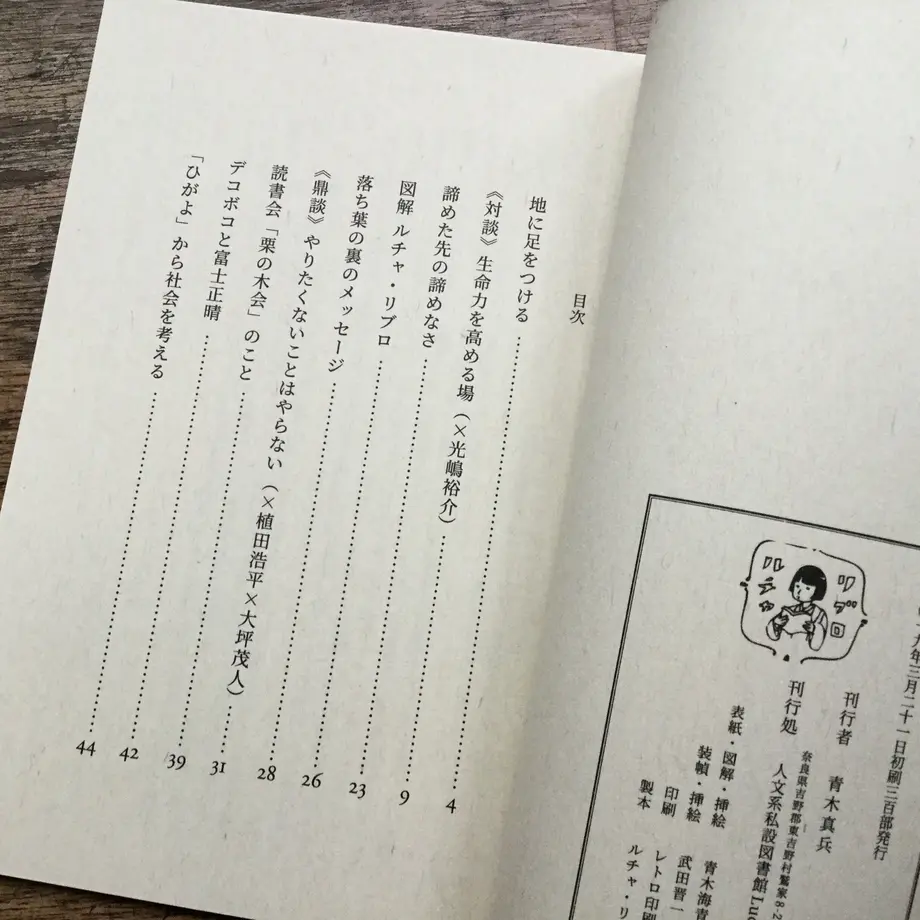 目次
地に足をつける……4
《対談》生命力を高める場（×光嶋裕介）……9
諦めた先の諦めなさ……23
図解 ルチャ・リブロ……26
落ち葉の裏のメッセージ……28
《鼎談》やりたくないことはやらない（×植田浩平×大坪茂人）……31
読書会「栗の木会」のこと……39
デコボコと富士正晴……42
「ひがよ」から社会を考える……44
リブロ
ルチャ
九年三月二十一日初刷三百部発行
刊行者 青木真兵
奈良県吉野郡東吉野村鷲家8-2
刊行処 人文系私設図書館Luc
表紙・図解・挿絵 青木海青
装幀・挿絵 武田晋一
印刷 レトロ印刷
製本 ルチャ・リ